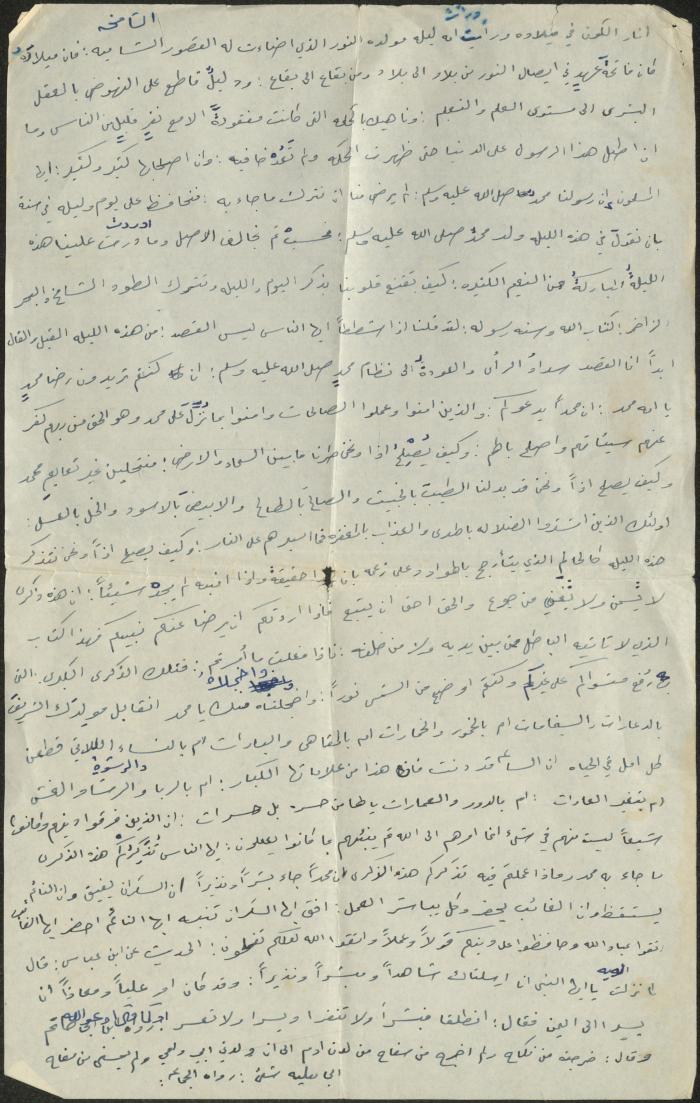 انار الكون في ميلاده ورأيت امه ليلة مولده النور الذي اضاءت له القصور الشاميه : فان ميلاده
الشامخه
كان فاتحة عهدٍ في ايصال النور من بلاد الى بلاد ومن بقاع الى بقاع : ودليلٌ قاطع على النهوض بالعقل
البشرى الى مستوى العلم والتعلم : وناهيك بالحكمه التى كانت مفقودةً الا مع نفرٍ قليلٍ من الناس وما
ان اطل هذا الرسول على الدنيا حتى ظهرت الحكمه ولم تَعُدْ خافيه : وان اصحابها كثير وكثير : ايها
المسلمون ان رسولنا محمد صلى الله عليه وسلم : لم يرض منا ان نترك ما جاء به : فنحافظ على يوم وليله في سنة
بان نقول في هذه الليله ولد محمد صلى الله عليه وسلم : فحسب ثم نخالف الاصل وما ادردت علينا هذه
الليلةُ المباركةُ من النعيم الكثيره : كيف تقتنع قلوبنا بذكر اليوم والليله ونترك الطود الشامخ والبحر
الزاخر : كتاب الله وسنه رسوله : لقد قلنا اذا شططاً ايها الناس ليس القصد : من هذه الليله القيل والقال
ابداً انما القصد سداد الرأى والعودةُ الى نظام محمدٍ صلى الله عليه وسلم : ان كنتم تريدون رضا محمدٍ
يا امه محمد : ان محمداً يدعوكم : والذين امنوا وعملوا الصالحات وامنوا بما نُزِّلَ على محمد وهو الحق من ربهم كفر
عنهم سيئاتهم واصلح بالهم : وكيف يُصْلِحُ اذا ونحن صرنا ما بين السماء والارض : منتحلين غير تعاليم محمد
وكيف يصلح اذاً ونحن قد بدلنا الطيب بالخبيث والصالح بالطالح والابيض بالاسود والخل بالعسل :
اولئك الذين اشتروا الضلاله بالهدى والعذاب بالمغفره فما اصبرهم على النار : وكيف يصلح اذاً ونحن نتذكر
هذه الليله كالحالم الذي يتأرجح بالهواء وعلى زعمه بان حقيقة واذا انتبه لم يجد شيئاً : ان هذه ذكرى
لا تُسمن ولا تُغني من جوع والحق احق ان يتبع فاذا اردتم ان يرضا عنكم نبيكم فهذا كتاب
الذي لا تاتيه الباطل من بين يديه ولا من خلفه : فاذا فعلت ما أُمرتم : فتلك الذكرى الكبرى : التى
رُفع مستواكم على غيركم وكنتم اوضح من الشمس نوراً : واخجلاه منك يا محمد انقابل مولدك الشريف
بالدعارات والسفاهات ام بالخمور والخمارات ام بالمقاهي والبارات ام بالنساء اللاتي قطعن
كل امل في الحياه ان الساعه قد دنت فان هذا من علاماتها الكبار : ام بالربا والرشوه والغش
ام بتغير العادات : ام بالدور والعمارات يالها من حسره بل حسرات : ان الذين فرقوا دينهم وكانوا
شيعاً لست منهم في شئ انما امرهم الى الله ثم ينبئهم بما كانوا يفعلون : ايها الناس تُذَكِّرُكُمْ هذه الذكرى
ما جاء به محمد وماذا عملتم فيه تذكركم هذه الذكرى ان محمداً جاء بشيراً ونذيراً ان السكران يفيق وان النائم
يستيقظ وان الغائب يحضر وكل يباشر العمل : افق ايها السكران تنبه ايها النائم احضر ايها الغائب
اتقوا عباد الله وحافظوا على دينكم قولاً وعملاً واتقوا الله لعلكم تفلحون : الحديث عن ابن عباس : قال
لما نزلت الايه يا ايها النبي انا ارسلناك شاهداً ومبشراً ونذيراً : وقد كان امر علياً ومعاذاً ان
يسيرا الى اليمن فقال : انطلقا فبشرا ولا تنفرا ويسرا ولا تعسر
وقال : خرجت من نكاح ولم اخرج من سفاح من لدن ادم الى ان ولدني ابي وامي ولم يصبني من سفاح
الجاهليه شئ : رواه